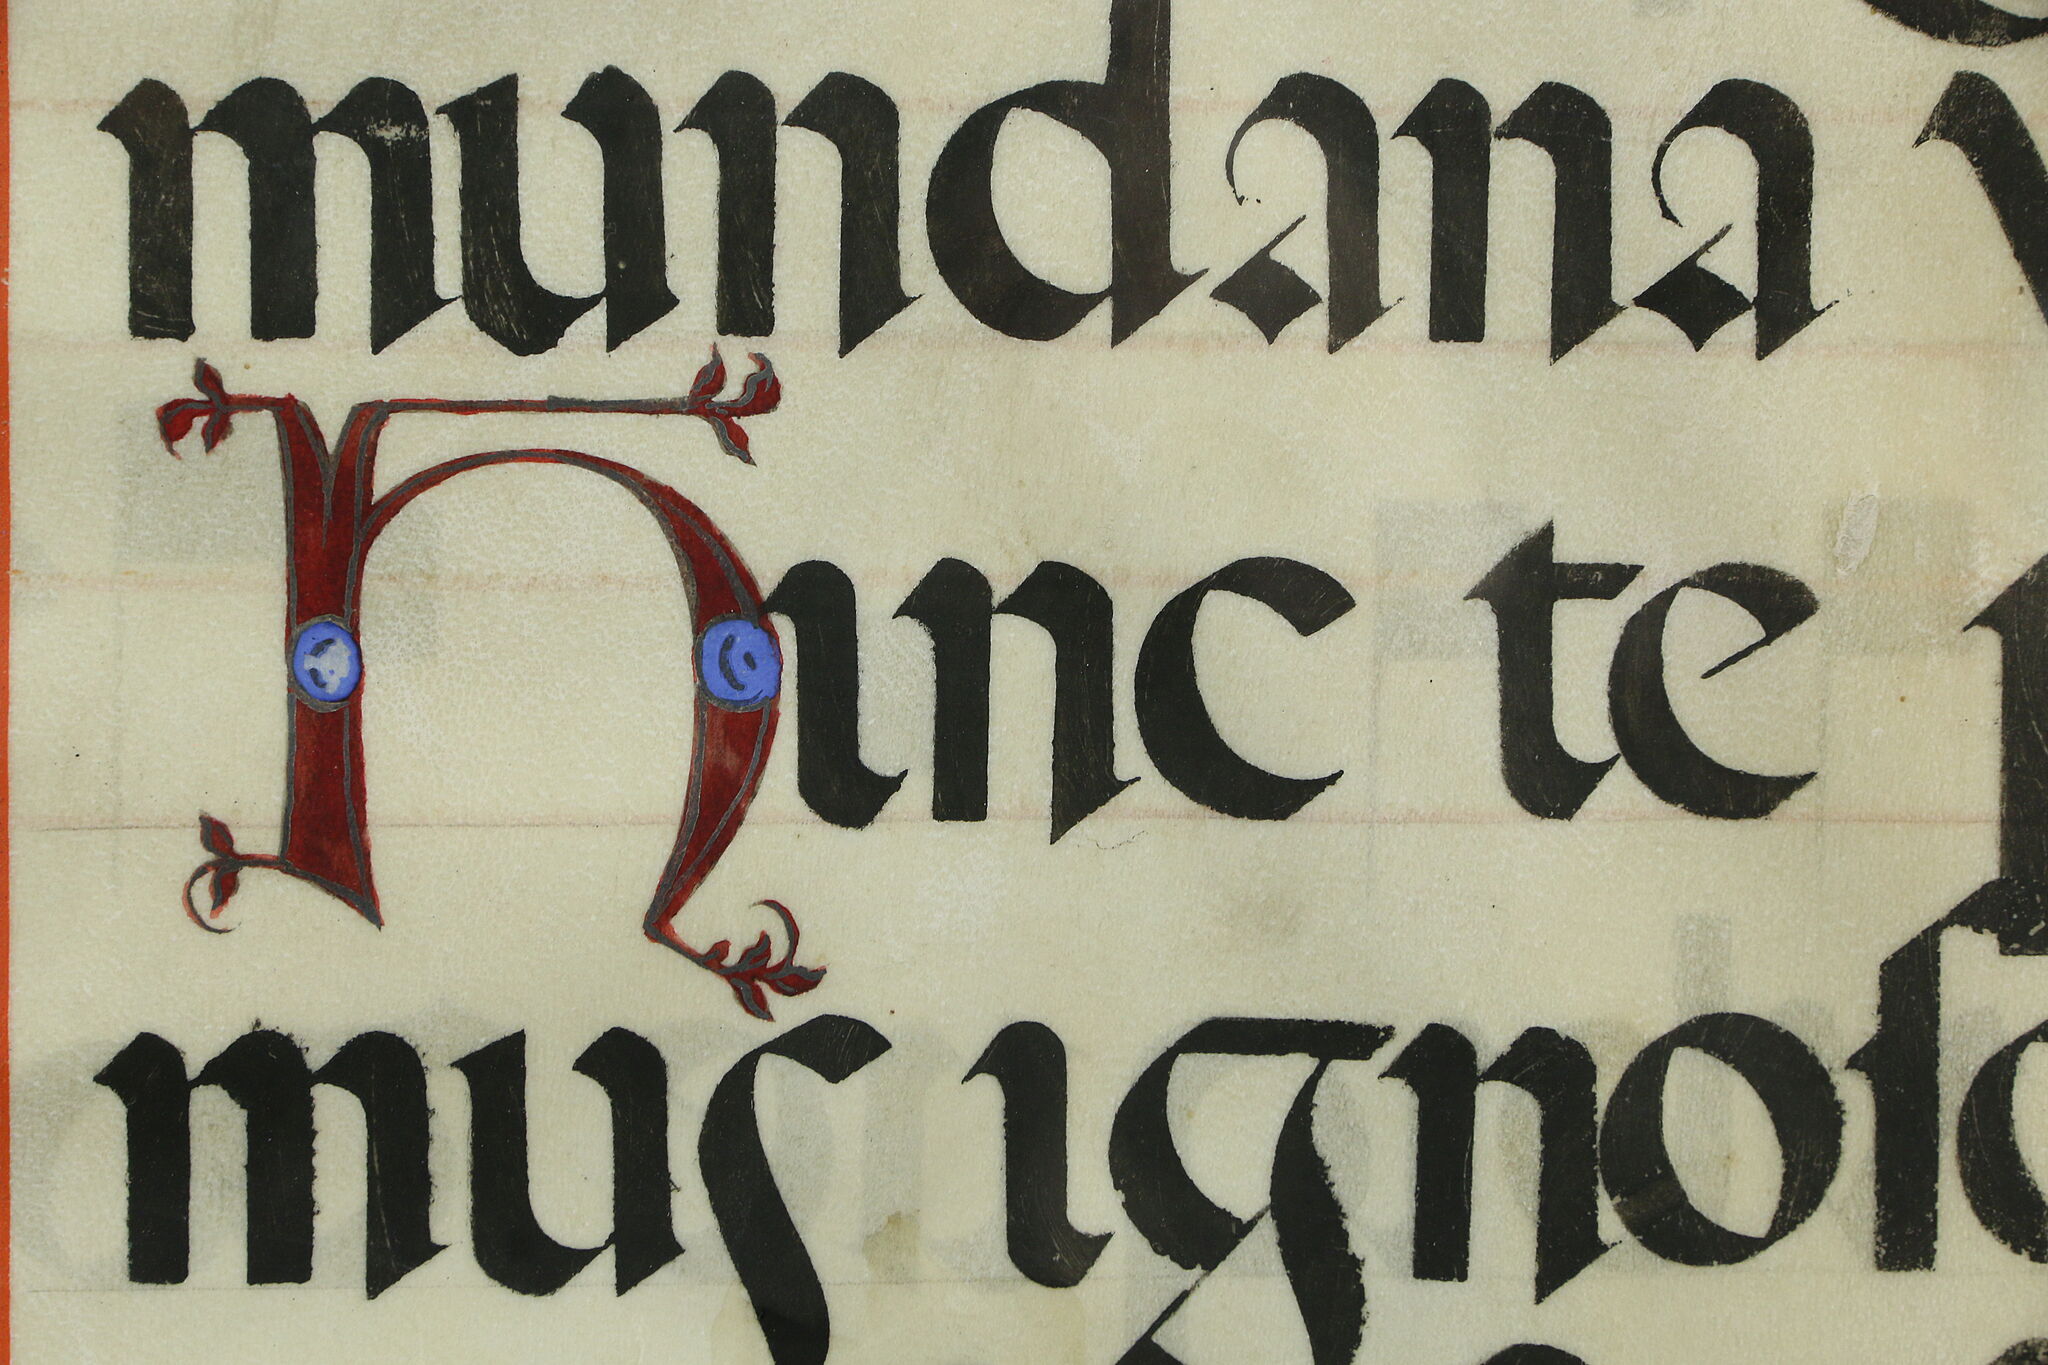 mundana
Hinc te
mus ignosc